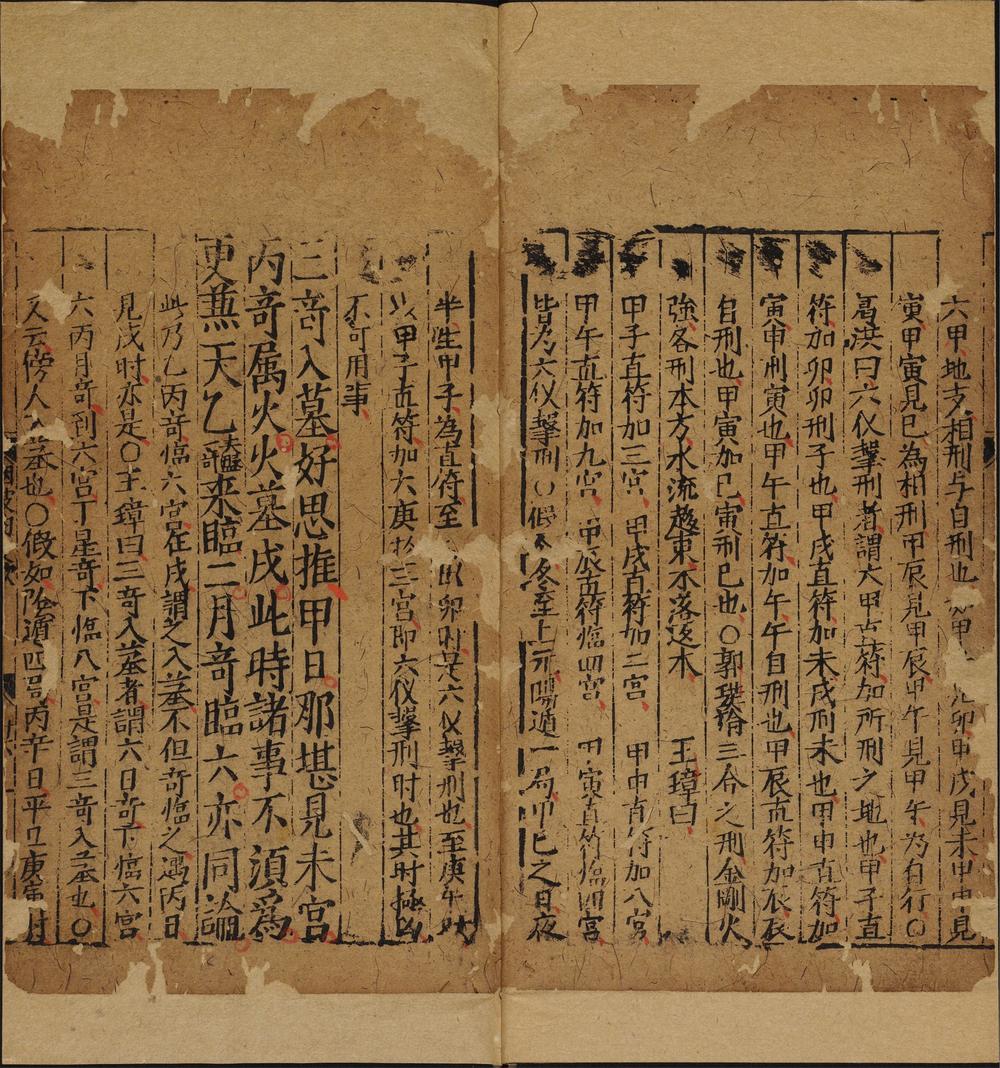 六甲地支相刑与自刑也 甲 卯甲戌見未甲申見
寅甲寅見巳為相刑甲辰見甲辰甲午見甲午為自行〇
髙洪曰六仪擊刑者謂六甲直符加所刑之地也甲子直
符加卯卯刑子也甲戌直符加未戌刑未也甲申直符加
寅申刑寅也甲午直符加午午自刑也甲辰直符加辰辰
自刑也甲寅加巳寅刑巳也〇郭璞撍三合之刑金剛火
強各刑本方水流趍東木落返木 王璋曰
甲子直符加三宮 甲戌直符加二宮 甲申直符加八宮
甲午直符加九宮 甲辰直符臨四宮 甲寅直符臨四宮
皆為六仪擊刑〇假令冬至上元陽遁一局卯巳之日夜
半生甲子為直符至 卯刑是六仪擊刑也至庚午時
以甲子直符加六庚於三宮即六仪擊刑时也其时極凶
不可用事
三竒入墓好思推甲日那堪見未宮
丙竒属火火墓戌此時諸事不須爲
更無天乙来臨二月竒臨六亦同論
此乃乙丙竒臨六宮在戌謂之入墓不但竒臨之遇丙日
見戌时亦是〇王璋曰三竒入墓者謂六日竒下臨六宮
六丙月竒到六宮丁星竒下臨八宮是謂三竒入墓也〇
又云傍人入墓也〇假如阴遁四局丙辛日平旦庚寅时